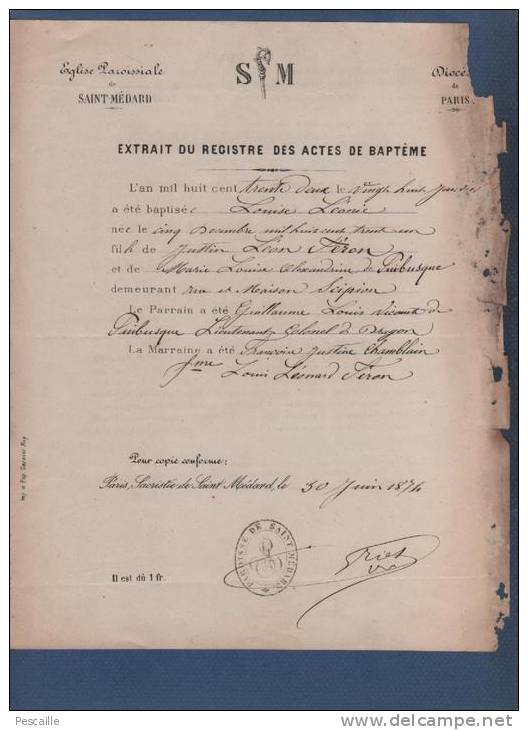 Eglise Paroissiale
de
SAINT-MÉDARD
S M
Diocè
de
PARIS.
EXTRAIT DU REGISTRE DES ACTES DE BAPTÊME
L'an mil huit cent trente deux le vingt huit Janvier
a été baptisée Louise Léonie
née le cinq Decembre mil huit cent trente un
fille de Justin Léon Féron
et de Marie Louise Alexandrine de Puibusque
demeurant rue et Maison Scipion
Le Parrain a été Guillaume Louis Vicomte de
Puibusque Lieutenant Colonel de Dragon
La Marraine a été Françoise Justine Chamblain
fme Louis Léonard Féron
Pour copie conforme:
Paris, Sacristie de Saint Médard, le 30 Juin 1874
PAROISSE DE SAINT MÉDARD
Il est dû 1 fr.
Pescaille
www.delcampe.net